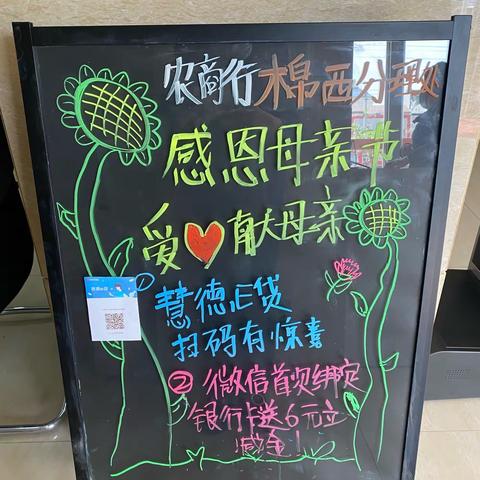 农商行棉西分理处
感恩母亲节
爱献母亲
①慧德E贷
扫码有惊喜
②微信首次绑定
银行卡送6元立
减金！